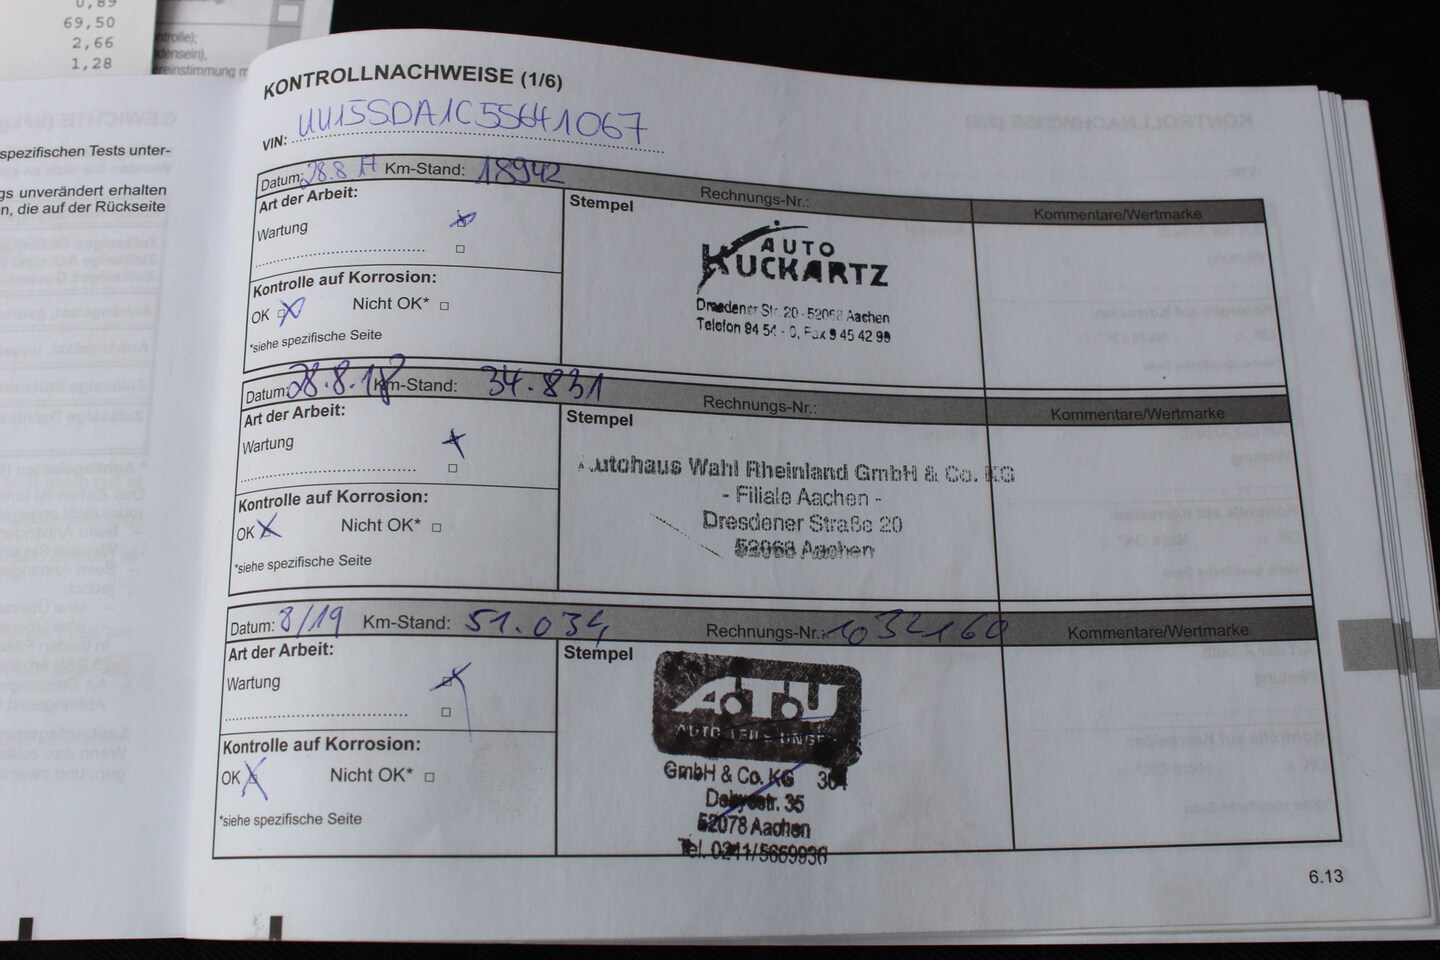 0,89
69,50
2,66
1,28
ntrolle);
densein),
ereinstimmung m
spezifischen Tests unter-
gs unverändert erhalten
n, die auf der Rückseite
KONTROLLNACHWEISE (1/6)
VIN: UU15SDA1C55641067
Datum: 28.8.17 Km-Stand: 18942 Rechnungs-Nr.: Kommentare/Wertmarke
Art der Arbeit:
Wartung
Kontrolle auf Korrosion:
OK Nicht OK*
*siehe spezifische Seite
Stempel
AUTO
KUCKARTZ
Dresdener Str. 20 - 52068 Aachen
Telefon 94 54 - 0, Fax 9 45 42 99
Datum: 28.8.18 Km-Stand: 34.831 Rechnungs-Nr.: Kommentare/Wertmarke
Art der Arbeit:
Wartung
Kontrolle auf Korrosion:
OK Nicht OK*
*siehe spezifische Seite
Stempel
Autohaus Wahl Rheinland GmbH & Co. KG
- Filiale Aachen -
Dresdener Straße 20
52068 Aachen
Datum: 8/19 Km-Stand: 51.034 Rechnungs-Nr.: 1032160 Kommentare/Wertmarke
Art der Arbeit:
Wartung
Kontrolle auf Korrosion:
OK Nicht OK*
*siehe spezifische Seite
Stempel
A.T.U
AUTO
GmbH & Co. KG 304
35
52078 Aachen
Tel. 0241/5659936
6.13